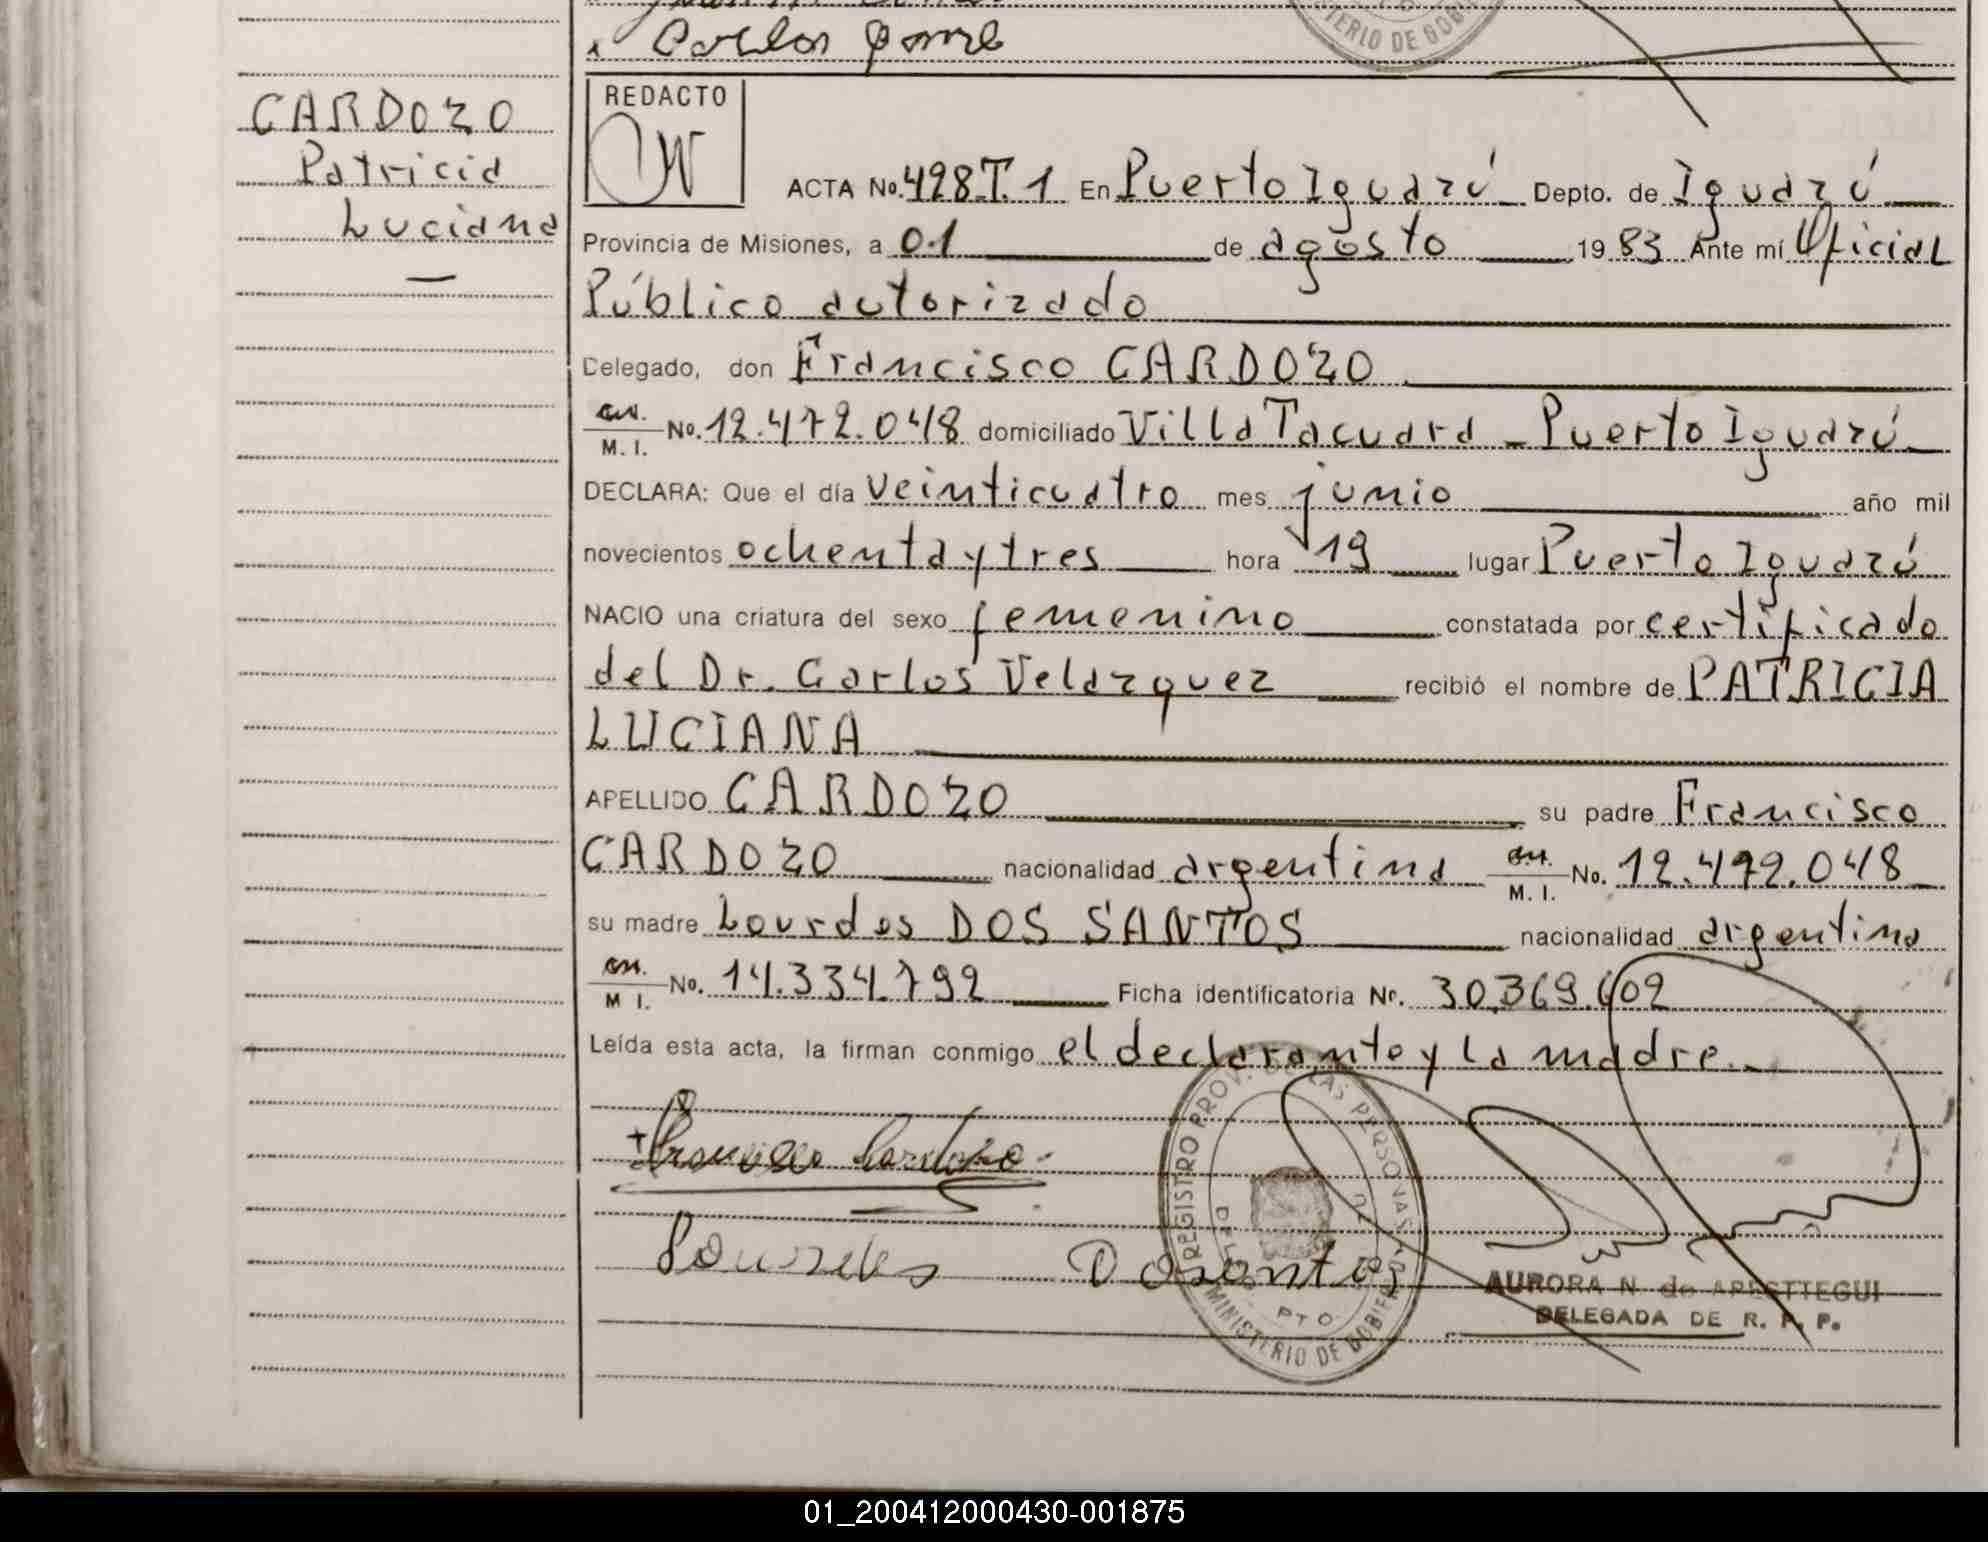 Carlos Gomez
TERIO DE GOBIE
CARDOZO
Patricia
Luciana
—
REDACTO
ACTA No. 498 T. 1 En Puerto Iguazú Depto. de Iguazú
Provincia de Misiones, a 01 de agosto 1983 Ante mí Oficial
Público autorizado
Delegado, don Francisco CARDOZO
M. I. No. 12.472.048 domiciliado Villa Tacuara - Puerto Iguazú
DECLARA: Que el día veinticuatro mes junio año mil
novecientos ochenta y tres hora 19 lugar Puerto Iguazú
NACIO una criatura del sexo femenino constatada por certificado
del Dr. Carlos Velazquez recibió el nombre de PATRICIA
LUCIANA
APELLIDO CARDOZO su padre Francisco
CARDOZO nacionalidad argentina M. I. No. 12.472.048
su madre Lourdes DOS SANTOS nacionalidad argentina
M I. No. 14.334.792 Ficha identificatoria Nr. 30.369.602
Leída esta acta, la firman conmigo el declarante y la madre.
Francisco Cardozo
Lourdes Dosantos
REGISTRO PROV. DE LAS PERSONAS
PTO.
MINISTERIO DE GOBIER
AURORA N. de APESTTEGUI
DELEGADA DE R. P. P.
01_200412000430-001875